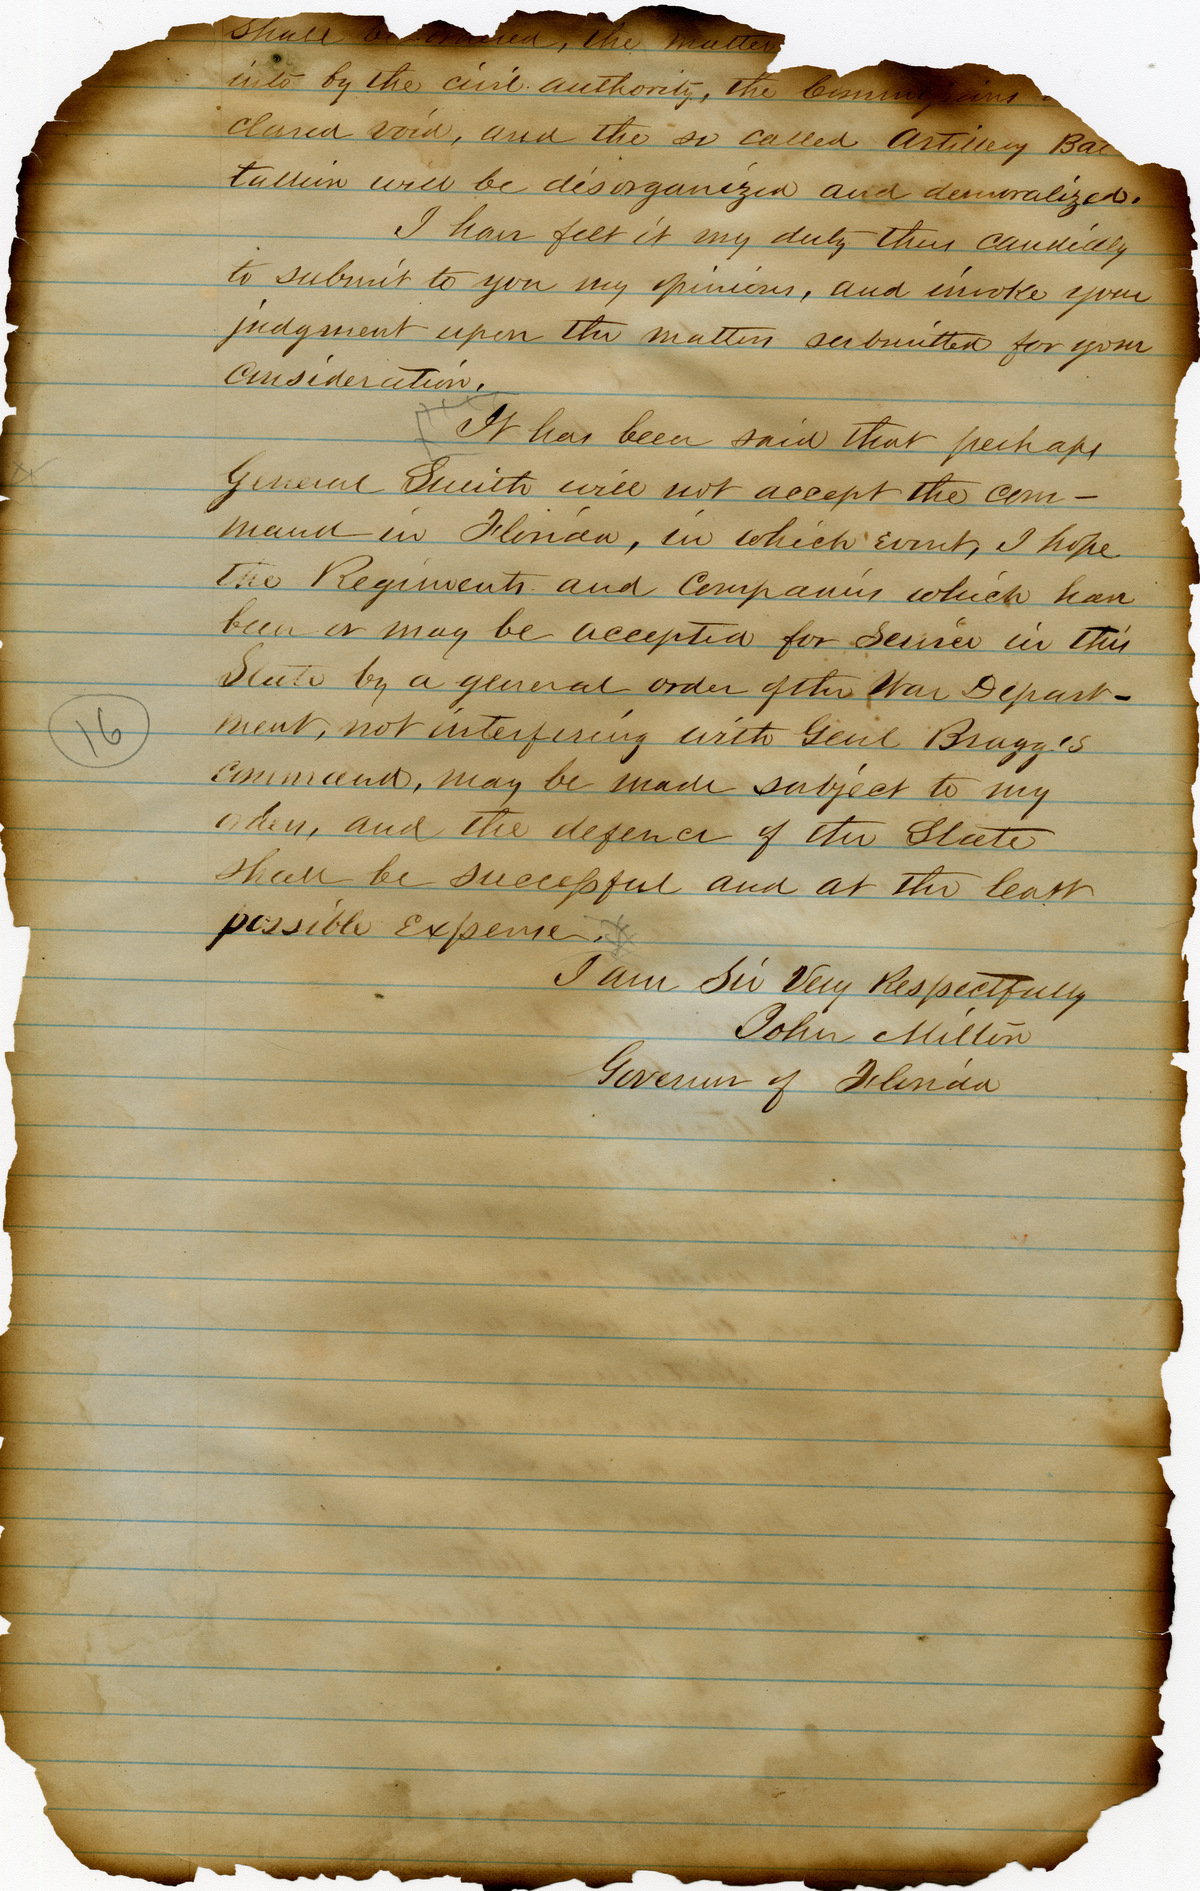 shall be ordered, the matter
into by the civil authority, the Commissions
clared void, and the so called Artillery Bat
tallion will be disorganized and demoralized.
I have felt it my duty thus candidly
to submit to you my opinions, and invoke your
judgment upon the matters submitted for your
consideration.
It has been said that perhaps
General Smith will not accept the com-
mand in Florida, in which event, I hope
the Regiments and Companies which have
been or may be accepted for Service in this
State by a general order of the War Depart-
ment, not interfering with Genl Bragg's
command, may be made subject to my
orders, and the defence of the State
shall be successful and at the least
possible expense.
16
I am Sir Very Respectfully
John Milton
Governor of Florida